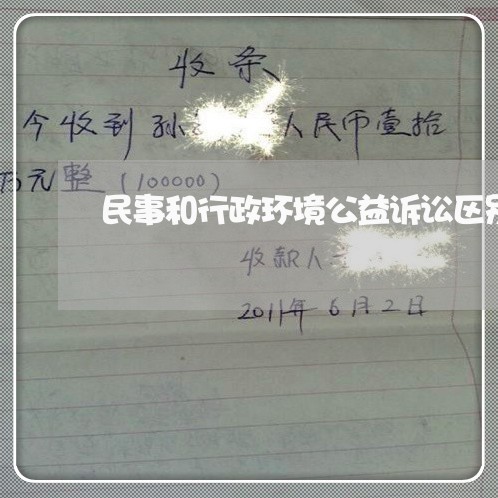 收条
今收到孙 人民币壹拾
万元整(100000)
民事和行政环境公益诉讼区别
收款人
2011年6月2日